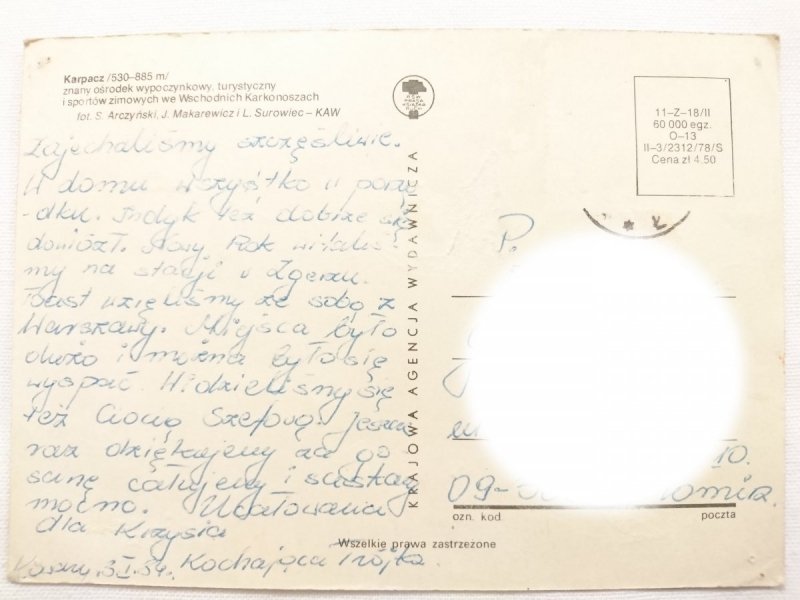 Karpacz /530–885 m/
znany ośrodek wypoczynkowy, turystyczny
i sportów zimowych we Wschodnich Karkonoszach
fot. S. Arczyński, J. Makarewicz i L. Surowiec – KAW
Zajechaliśmy szczęśliwie.
W domu wszystko w porzą
-dku. Indyk też dobrze się
dowiózł. Nowy Rok witaliś-
my na stacji w Zgierzu.
Toast wzięliśmy ze sobą z
Warszawy. Miejsca było
dużo i można było się
wyspać. Widzieliśmy się
też Ciocią Szefową. Jeszcze
raz dziękujemy za go
ścinę całujemy i ściskamy
mocno. Ucałowania
dla Krzysia
3.I.84. Kochająca Trójka.
KRAJOWA AGENCJA WYDAWNICZA
RSW PRASA KSIĄŻKA RUCH
11–Z–18/II
60 000 egz.
O–13
II–3/2312/78/S
Cena zł 4.50
P.
10.
09-
ozn. kod
poczta
Wszelkie prawa zastrzeżone